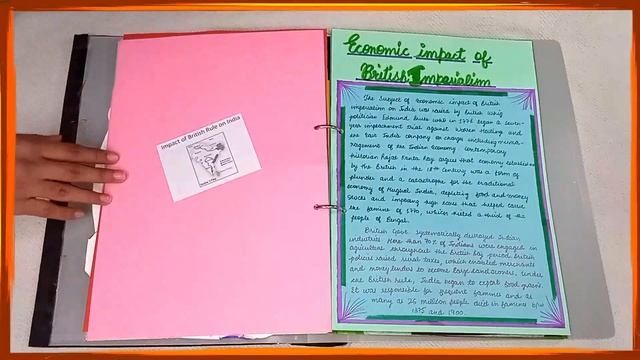 Impact of British Rule on India
Economic impact of
British Imperialism
The subject of economic impact of British
imperialism on India was raised by British whig
politician Edmund Burke who in 1778 began a seven-
year impeachment trial against Warren Hastings and
the East India company on charges including misma-
nagement of the Indian economy. Contemporary
historian Rajat Kanta Ray argues that economy established
by the British in the 18th century was a form of
plunder and a catastrophe for the traditional
economy of Mughal India, depleting food and money
stocks and imposing high taxes that helped cause
the famine of 1770, which killed a third of the
people of Bengal.
British Govt. systematically destroyed Indian
industries. More than 70% of Indians were engaged in
agriculture throughout the British Raj period. British
policies raised rural taxes, which enabled merchants
and money lenders to become large land owners. Under
the British rule, India began to export food grains.
It was responsible for frequent famines and as
many as 26 million people died in famines b/w
1875 and 1900.